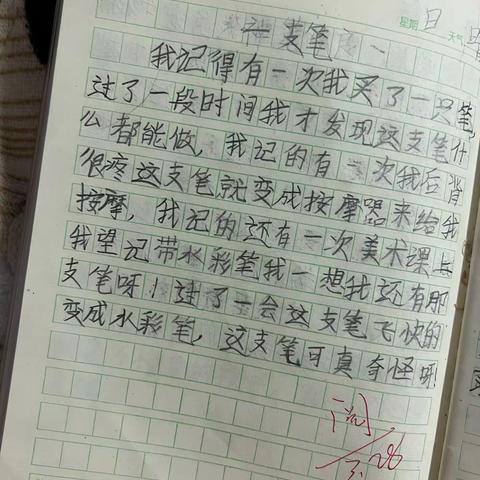 星期 日 天气
一支笔
我记得有一次我买了一只笔,
过了一段时间我才发现这支笔什
么都能做,我记的有一次我后背
很疼这支笔就变成按摩器来给我
按摩,我记的还有一次美术课上
我望记带水彩笔我一想我还有那
支笔呀!过了一会这支笔飞快的
变成水彩笔,这支笔可真奇怪呀
阅
3.26